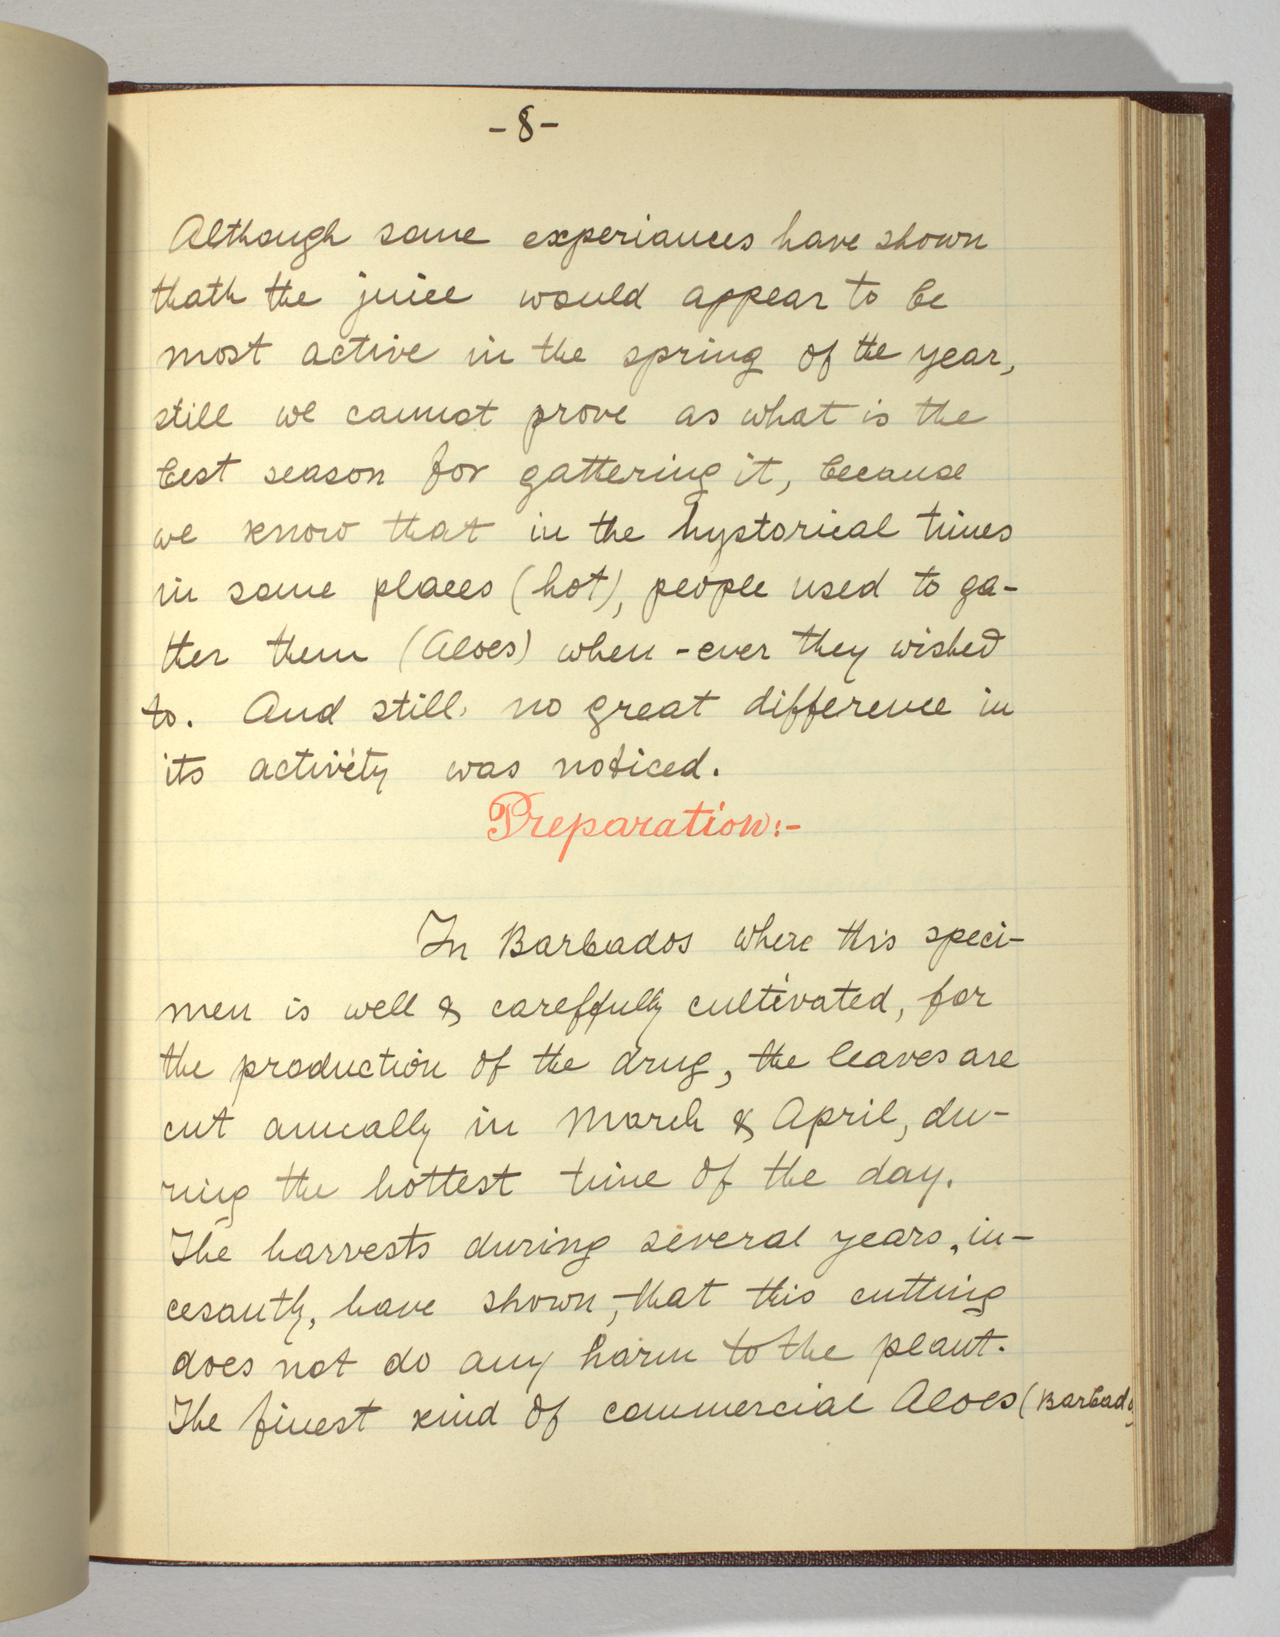 -8-
Although some experiances have shown
thath the juice would appear to be
most active in the spring of the year,
still we cannot prove as what is the
best season for gattering it, because
we know that in the hystorical times
in some places (hot), people used to ga-
ther them (Aloes) when-ever they wished
to. And still no great difference in
its activity was noticed.
Preparation:-
In Barbados where this speci-
men is well & careffully cultivated, for
the production of the drug, the leaves are
cut anually in March & April, du-
ring the hottest time of the day.
The harvests during several years, in-
cesantly, have shown, that this cutting
does not do any harm to the plant.
The finest kind of commercial Aloes (Barbados